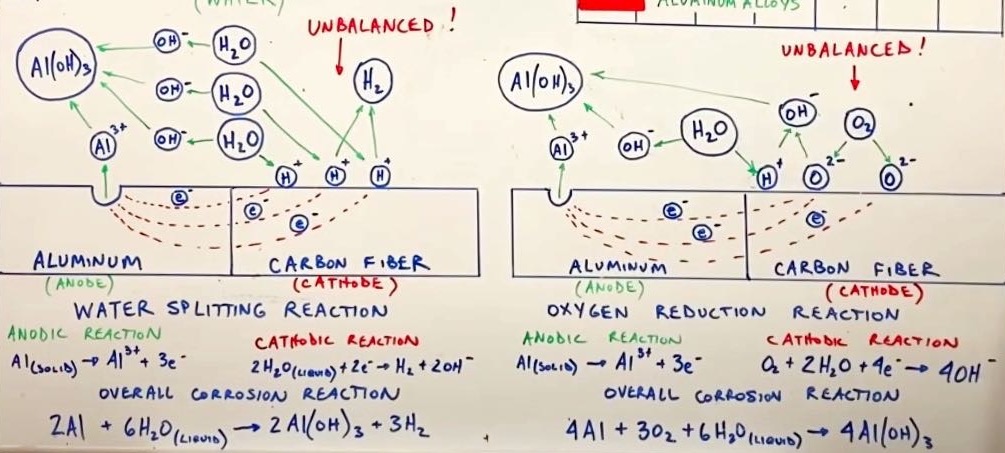 (WATER)
ALUMINUM ALLOYS
UNBALANCED!
Al(OH)₃
OH⁻
H₂O
OH⁻
H₂O
OH⁻
H₂O
Al³⁺
H₂
H⁺
H⁺
H⁺
e⁻
e⁻
e⁻
ALUMINUM
CARBON FIBER
(ANODE)
(CATHODE)
WATER SPLITTING REACTION
ANODIC REACTION
CATHODIC REACTION
Al(SOLID) → Al³⁺ + 3e⁻
2H₂O(LIQUID) + 2e⁻ → H₂ + 2OH⁻
OVERALL CORROSION REACTION
2Al + 6H₂O(LIQUID) → 2Al(OH)₃ + 3H₂
UNBALANCED!
Al(OH)₃
Al³⁺
OH⁻
H₂O
OH⁻
O₂
H⁺
O²⁻
O²⁻
e⁻
e⁻
e⁻
ALUMINUM
CARBON FIBER
(ANODE)
(CATHODE)
OXYGEN REDUCTION REACTION
ANODIC REACTION
CATHODIC REACTION
Al(SOLID) → Al³⁺ + 3e⁻
O₂ + 2H₂O + 4e⁻ → 4OH⁻
OVERALL CORROSION REACTION
4Al + 3O₂ + 6H₂O(LIQUID) → 4Al(OH)₃